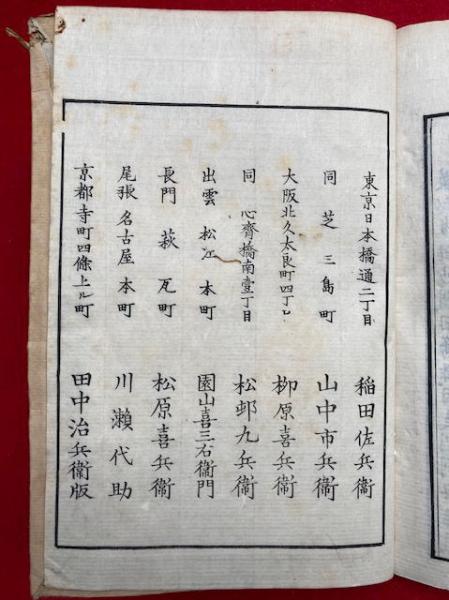 東京日本橋通二丁目 稲田佐兵衞
同 芝 三島町 山中市兵衞
大阪北久太良町四丁目 柳原喜兵衞
同 心齋橋南壹丁目 松邨九兵衞
出雲 松江 本町 園山喜三右衞門
長門 萩 瓦町 松原喜兵衞
尾張名古屋 本町 川瀬代助
京都寺町四條上ル町 田中治兵衞版